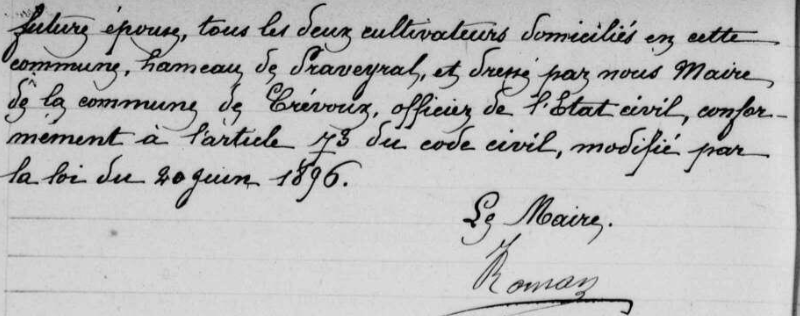 future épouse, tous les deux cultivateurs domiciliés en cette
commune, hameau de Praveyral, et dressé par nous Maire
de la commune de Trévoux, officier de l'Etat civil, confor-
mément à l'article 73 du code civil, modifié par
la loi du 20 juin 1896.
Le Maire.
Roman